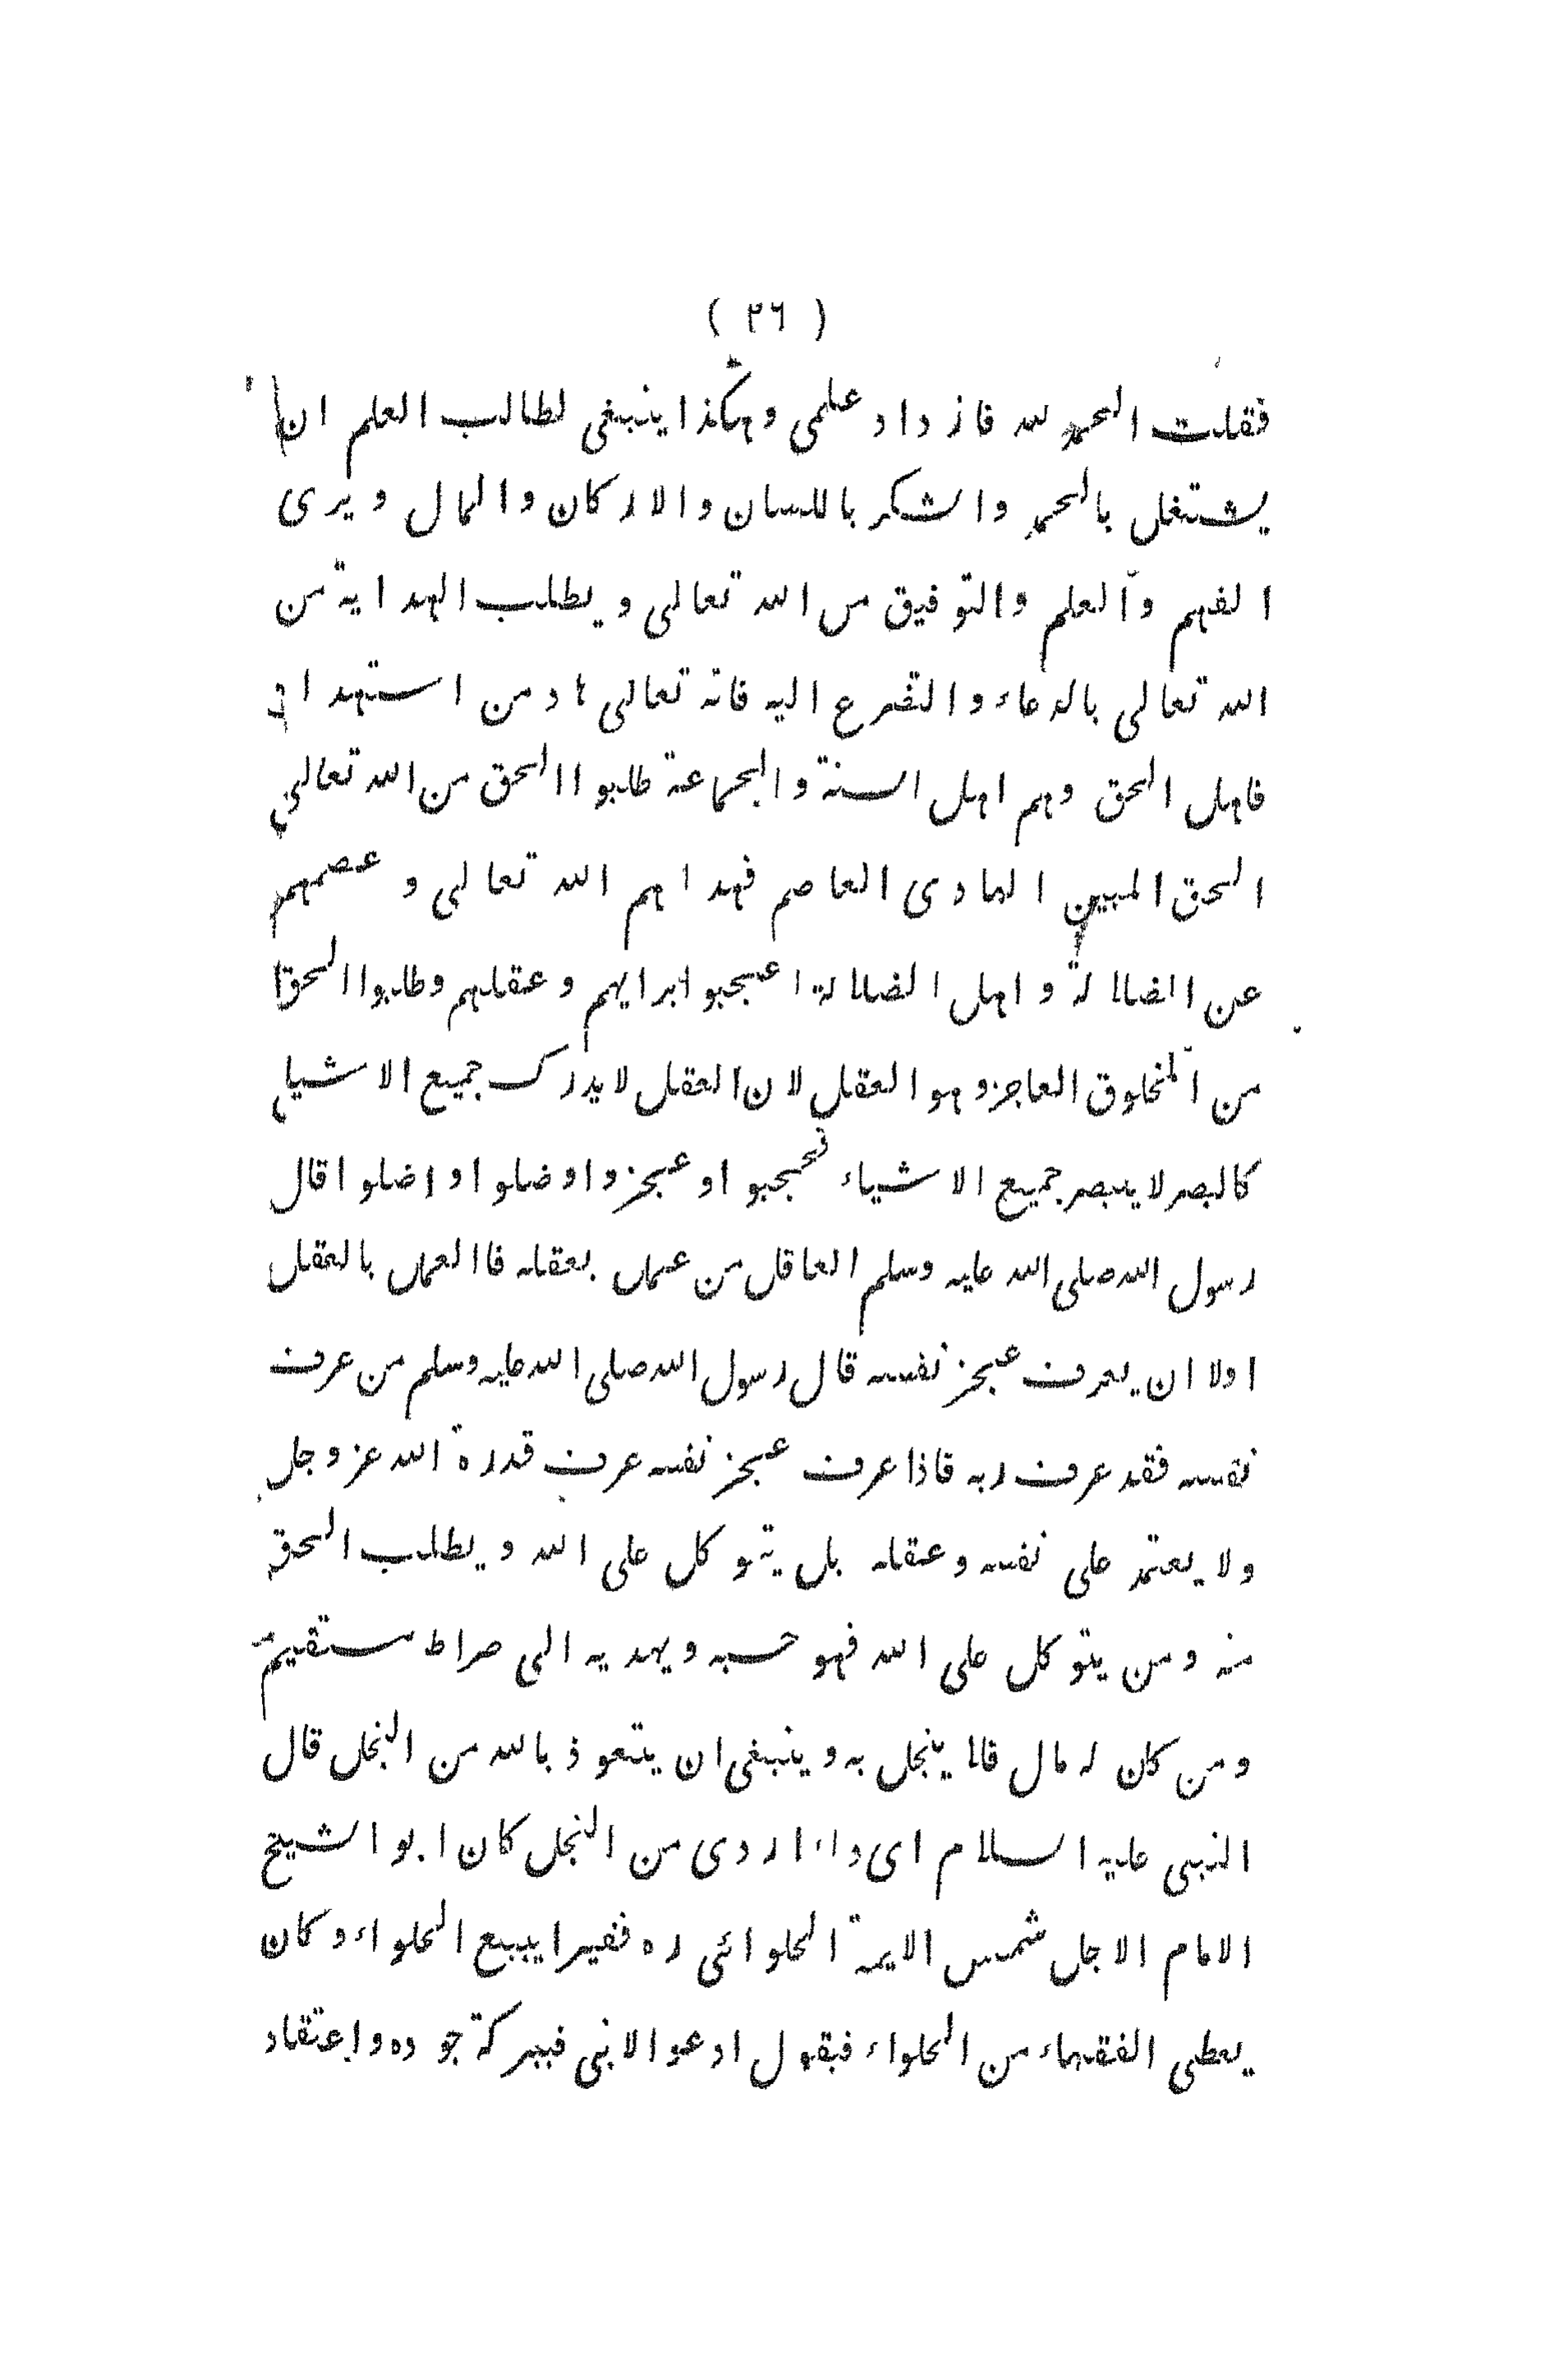 ( ٣٦ )
فقلت الحمد لله فازداد علمى وهكذا ينبغى لطالب العلم ان
يشتغل بالحمد والشكر باللسان والاركان والمال ويرى
الفهم والعلم والتوفيق من الله تعالى ويطلب الهداية من
الله تعالى بالدعاء والتضرع اليه فانه تعالى هاد من استهداه
فاهل الحق وهم اهل السنة والجماعة طلبوا الحق من الله تعالى
الحق المبين الهادى العاصم فهداهم الله تعالى وعصمهم
عن الضلالة واهل الضلالة اعجبوا برايهم وعقلهم وطلبوا الحق
من المخلوق العاجز وهو العقل لان العقل لا يدرك جميع الاشياء
كالبصر لا يبصر جميع الاشياء فحجبوا وعجزوا وضلوا واضلوا قال
رسول الله صلى الله عليه وسلم العاقل من عمل بعقله فاالعمل بالعقل
اولا ان يعرف عجز نفسه قال رسول الله صلى الله عليه وسلم من عرف
نفسه فقد عرف ربه فاذا عرف عجز نفسه عرف قدرة الله عز وجل
ولا يعتمد على نفسه وعقله بل يتوكل على الله ويطلب الحق
منه ومن يتوكل على الله فهو حسبه ويهديه الى صراط مستقيم
ومن كان له مال فلا يبخل به وينبغى ان يتعوذ بالله من البخل قال
النبى عليه السلام اى داء اردى من البخل كان ابو الشيخ
الامام الاجل شمس الايمة الحلوائى ره فقيرا يبيع الحلواء وكان
يعطى الفقهاء من الحلواء فيقول ادعوا لابنى فببركة جوده واعتقاد